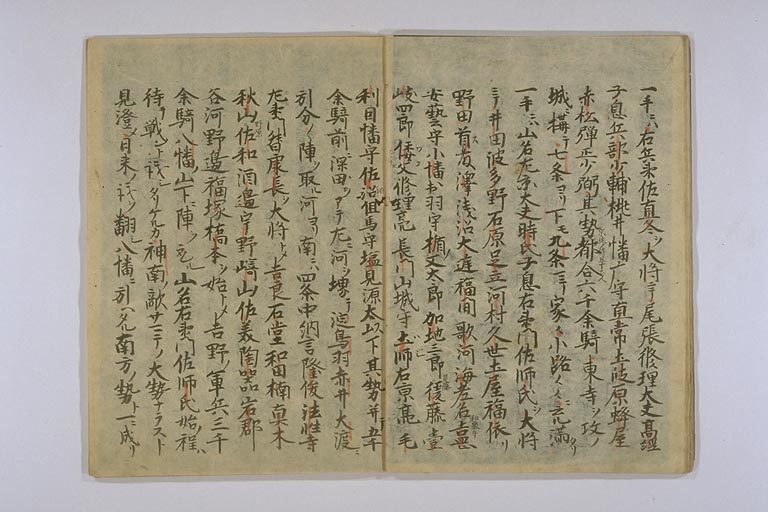 一手ハ右兵衛佐直冬ヲ大将ニテ尾張修理大夫高経
子息兵部少輔桃井播广守直常土岐原蜂屋
赤松弾正少弼其勢都合六千余騎東寺ヲ攻ノ
城ニ構テ七条ヨリ下モ九条ニテ家々小路々々ニ充満タリ
一手ニハ山名左京大夫時氏子息右衛門佐師氏ヲ大将
ニテ井田波多野石原足立河村久世土屋福依
野田首藤澤浅沼大庭福間歌河海老名吉喜
安藝守小幡出羽守楯又太郎加地三郎後藤
岐四郎倭文修理亮長門山城守土師右京亮毛
利因幡守佐治但馬守塩見源太以下其勢并五千
余騎前深田ヲアテ左ニ河ヲ堺テ淀鳥羽赤井大渡ニ
引分ノ陣ヲ取ル河ヨリ南ニハ四条中納言隆俊法性寺
左衛門督康長ヲ大将トノ吉良石堂和田楠真木
秋山佐和酒邊宇野崎山佐美陶器岩郡
谷河野邊福塚橋本ヲ始トノ吉野ノ軍兵三千
余騎八幡山下ニ陣ヲ取ル山名右衛門佐師氏始ノ程ハ
待テ戦ント議シタリケルカ神南敵サニテノ大勢ナラスト
見澄ノ自来ノ議ヲ翻ノ八幡ニ引ヘタル南方ノ勢ト一ニ成リ